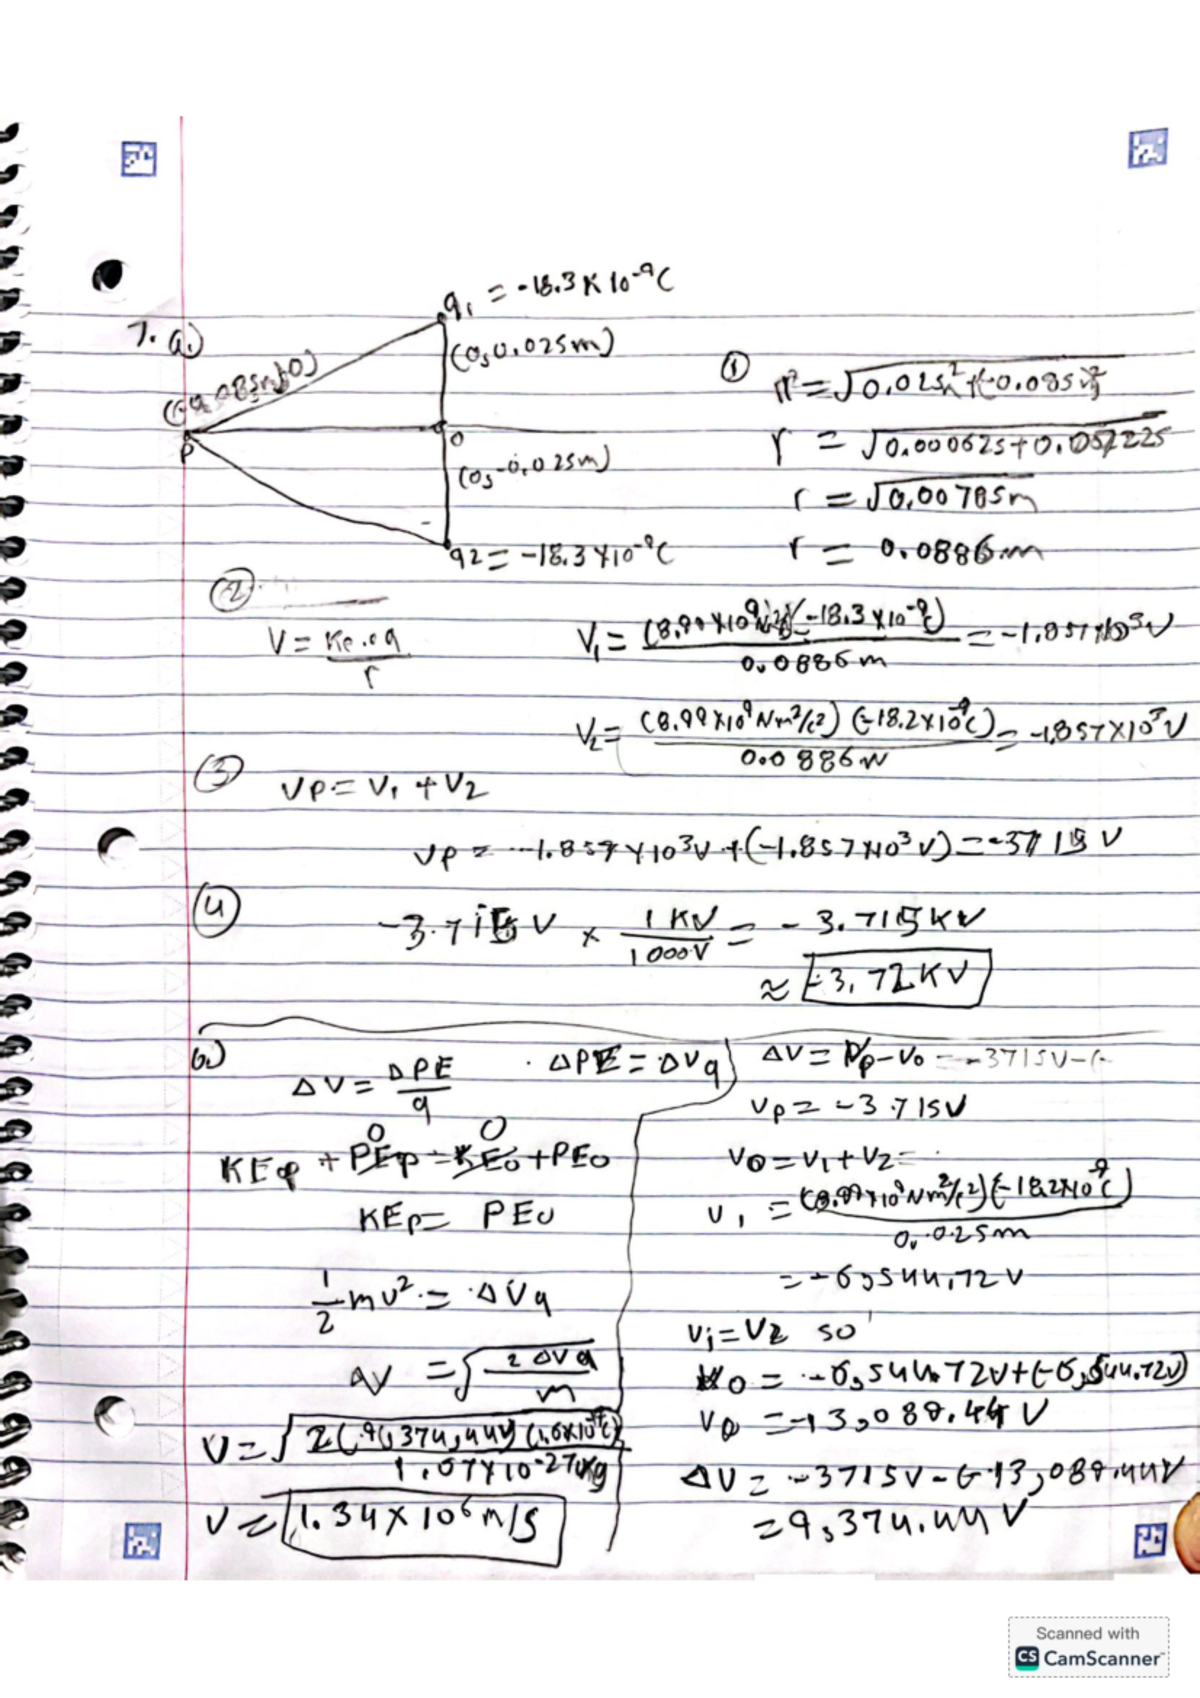 q₁ = -18.3 x 10⁻⁹C
7. a.)
(0,0.025m)
(-0.085m,0)
P
O
(0,-0.025m)
q2 = -18.3 x10⁻⁹C
①
r² = √0.025m² + (-0.085m)²
r = √0.000625+0.007225
r = √0.00785m
r = 0.0886m
②
V = Ke.q / r
V₁ = (8.99 x10⁹ (-18.3 x10⁻⁹C) / 0.0886m = -1.857 x10³V
V₂ = (8.99 x10⁹ Nm²/c²) (-18.2x10⁻⁹C) / 0.0886 = -1.857X10³V
③ VP = V₁ + V2
VP = -1.857 x10³V + (-1.857 x10³V) = -3715 V
④ -3.715 V x 1 KV / 1000V = -3.715KV
≈ -3.72KV
b.)
ΔV = ΔPE / q
ΔPE = ΔVq
0 0
KEp + PEp = KEo + PEo
KEp = PEo
1/2 mv² = ΔVq
ΔV = √2ΔVq / m
V = √2(9,374.44V) (1.6x10⁻¹⁹C) / 1.67x10⁻²⁷kg
V = 1.34 x 10⁶ m/s
ΔV = Vp-Vo = -3715V-(-
VP = -3.715V
VO = V₁ + V2 =
V₁ = (8.99x10⁹ Nm²/c²)(-18.2x10⁻⁹C) / 0.025m
= -6,544.72 V
V₁ = V2 so
VO = -6,544.72V+(-6,544.72V)
VO = -13,089.44 V
ΔV = -3715V-(-13,089.44V
= 9,374.44 V
Scanned with
CS CamScanner